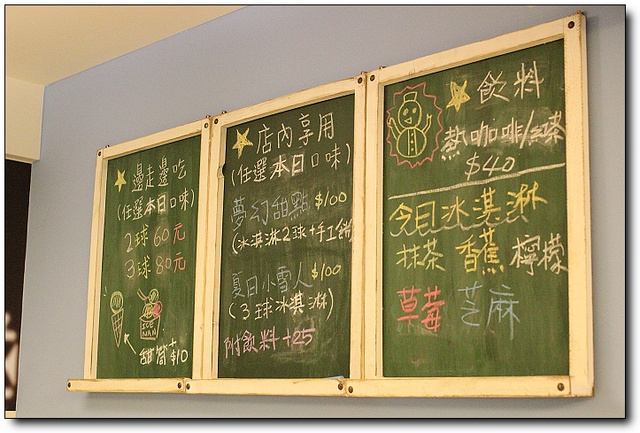 邊走邊吃
(任選本日口味)
2球 60元
3球 80元
甜筒+$10
店內享用
(任選本日口味)
夢幻甜點 $100
(冰淇淋2球+手工餅
夏日小雪人 $100
(3球冰淇淋)
附飲料+25
飲料
熱咖啡/紅茶
$40
今日冰淇淋
抹茶 香蕉 檸檬
草莓 芝麻